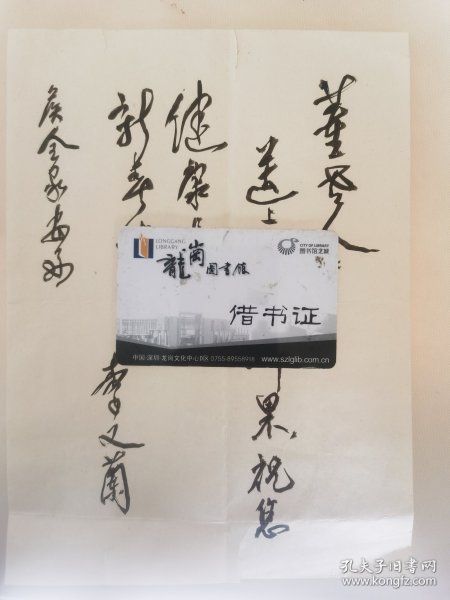 董
送上
果,祝您
健
新春
李又兰
侯全家安好
LONGGANG
LIBRARY
龍崗图書館
CITY OF LIBRARY
图书馆之城
借书证
中国·深圳·龙岗文化中心D区 0755-89558918 www.szlglib.com.cn
孔夫子旧书网
www.kongfz.com